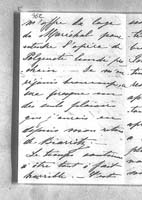 362
m'offre la loge
du Maréchal pour
entendre l'opéra de
Polyeucte lundi pro-
chain. Je m'en
réjouis beaucoup
une presque
du seul plaisir
que j'aurai eu
depuis mon retour
de Biarritz.
Le temps continue
à être tout à fait
horrible.